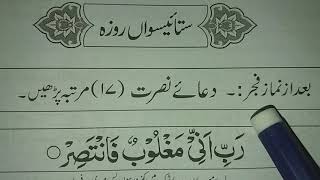 ستائیسواں روزہ
بعد از نماز فجر:۔ دعائے نصرت (۱۷) مرتبہ پڑھیں۔
رَبِّ اَنِّیْ مَغْلُوْبٌ فَانْتَصِرْ ○